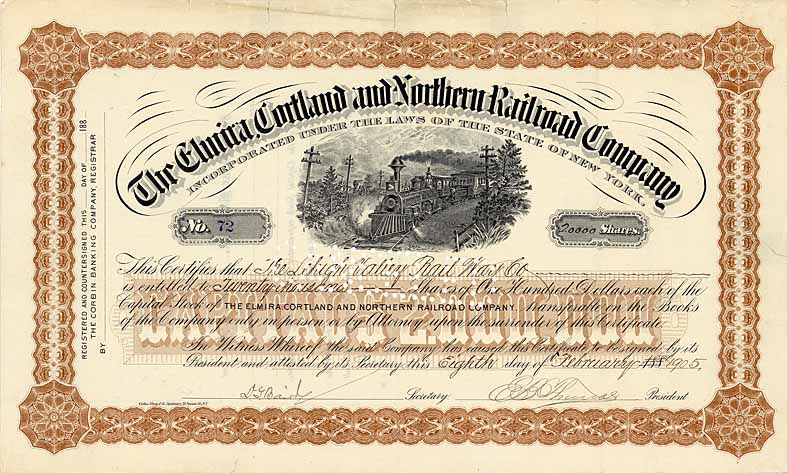 The Elmira, Cortland and Northern Railroad Company
INCORPORATED UNDER THE LAWS OF THE STATE OF NEW YORK.
No. 72
20000 Shares.
This Certifies that The Lehigh Valley Rail Road Co
is entitled to Twenty thousand Shares of One Hundred Dollars each of the
Capital Stock of THE ELMIRA, CORTLAND AND NORTHERN RAILROAD COMPANY. Transferable on the Books
of the Company only in person or by Attorney upon the surrender of this Certificate
In Witness Whereof the said Company has caused this Certificate to be signed by its
President and attested by its Secretary this Eighth day of February 188 1905.
D.G. Baird Secretary E.B. Thomas President
REGISTERED AND COUNTERSIGNED THIS DAY OF 188
THE CORBIN BANKING COMPANY, REGISTRAR
BY